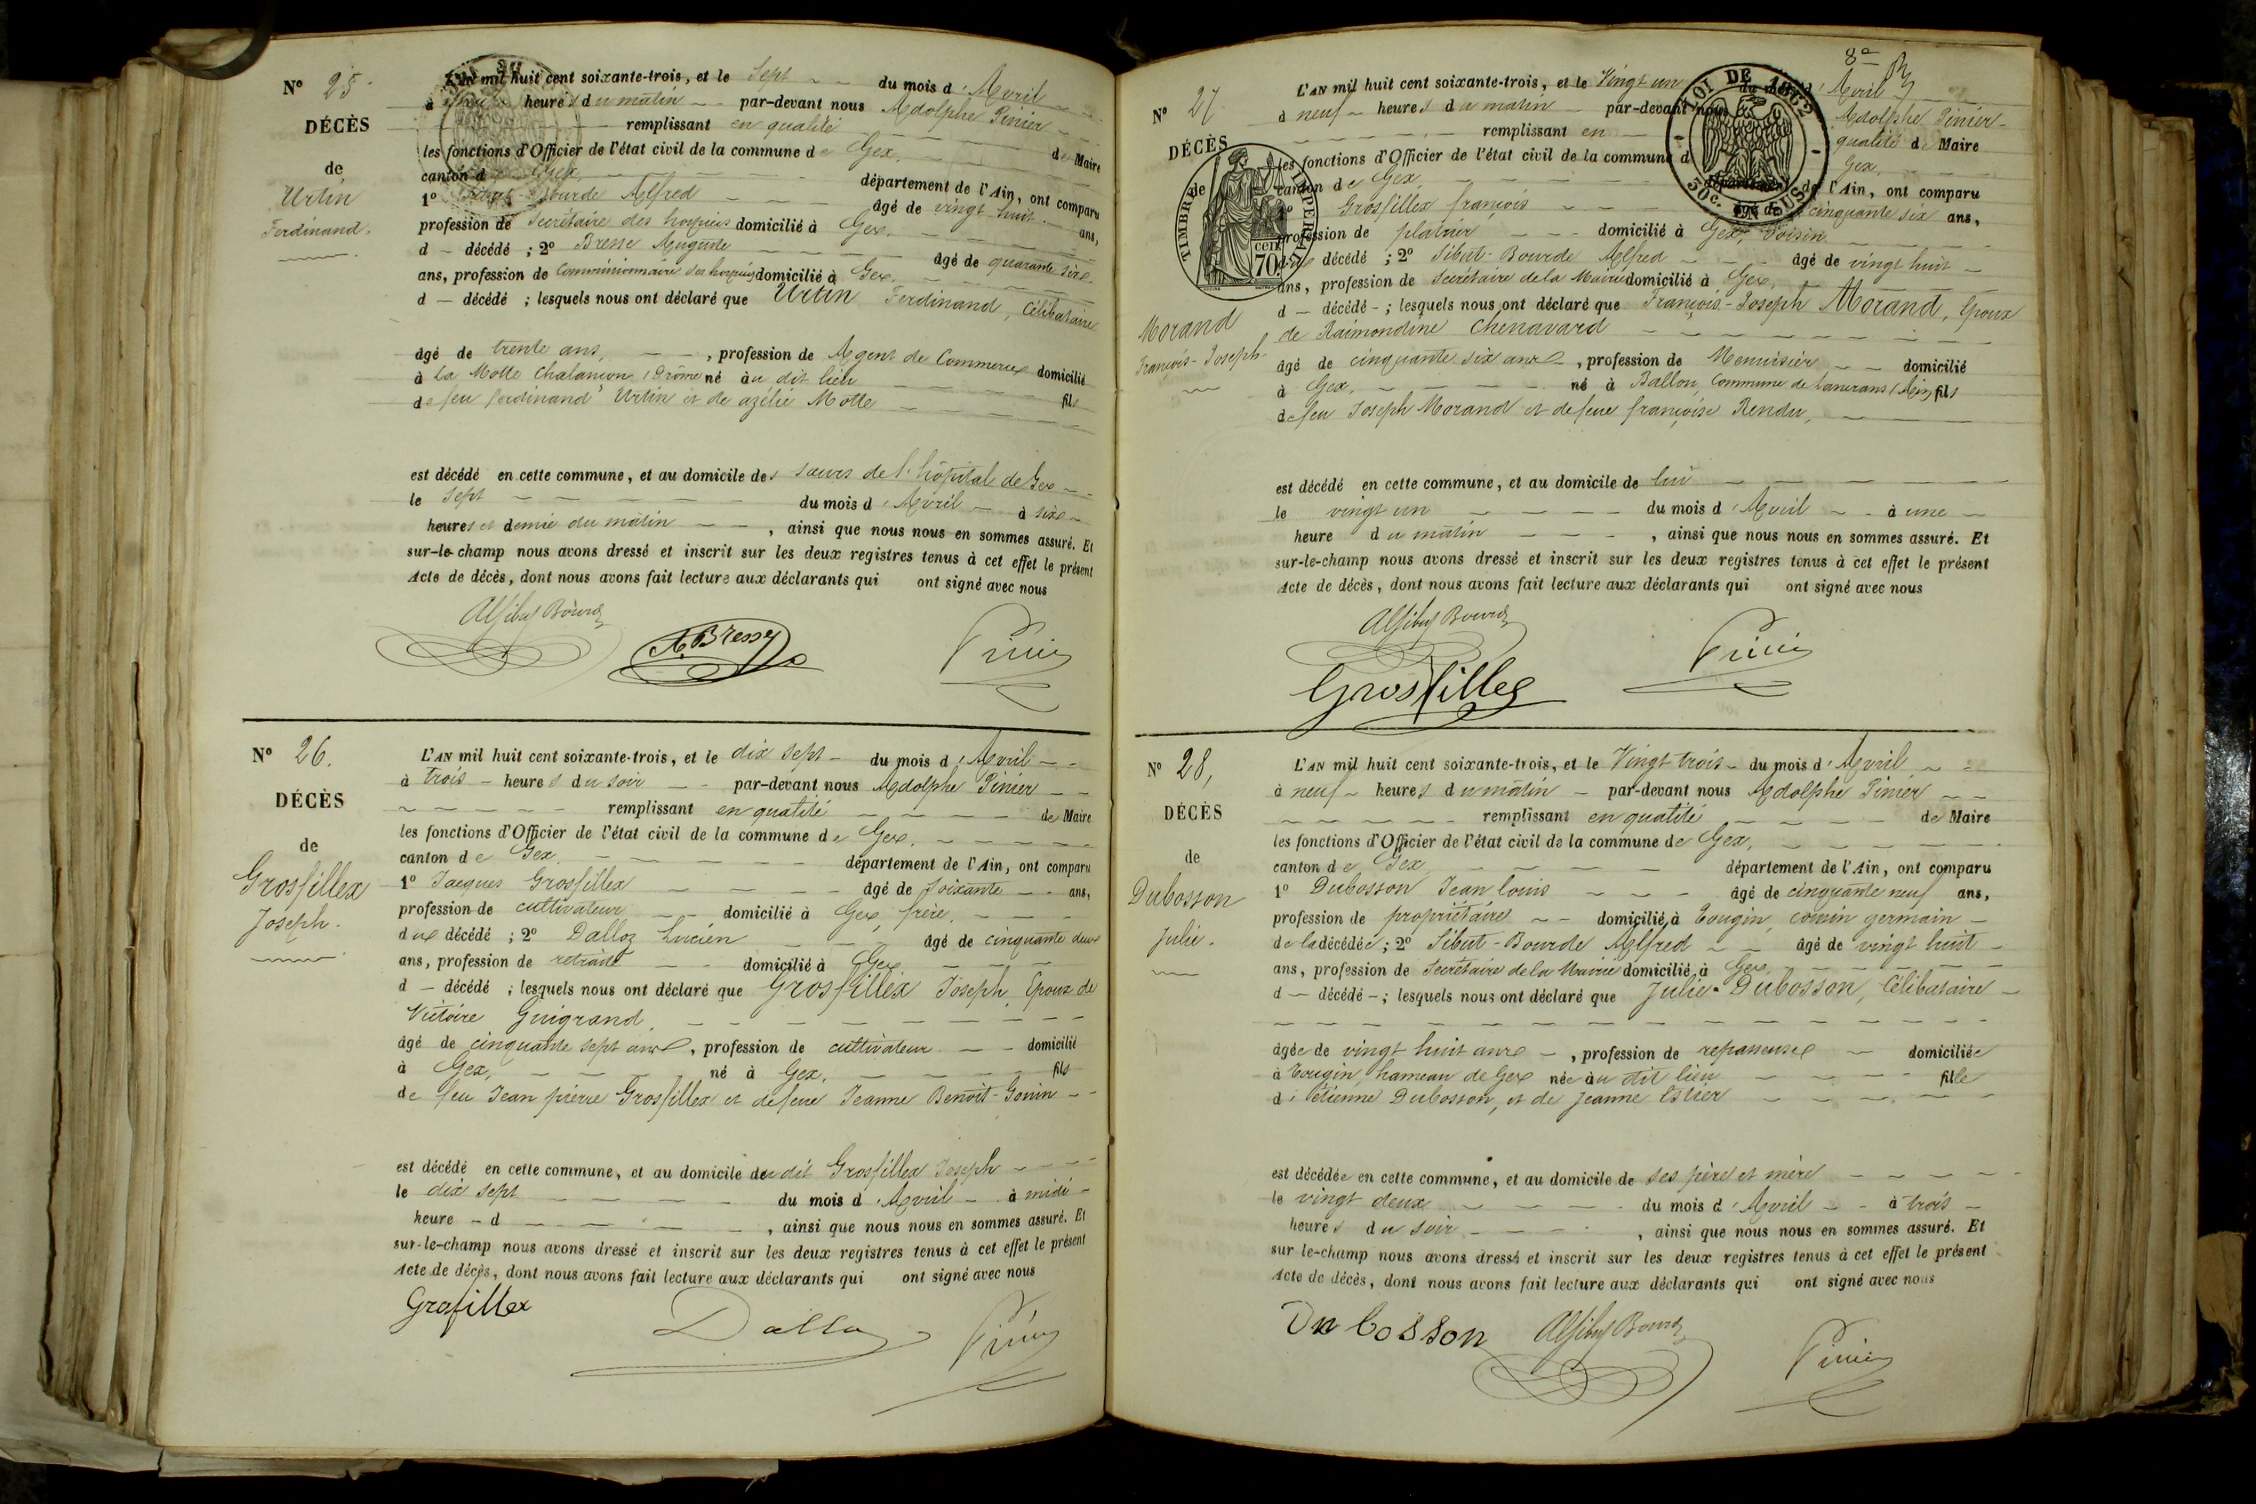 N° 25
DÉCÈS
de
Urtin
Ferdinand.
L'AN mil huit cent soixante-trois, et le Sept du mois d'Avril
à heures du matin par-devant nous Adolphe Pinier
remplissant en qualité de Maire
les fonctions d'Officier de l'état civil de la commune de Gex,
canton de Gex, département de l'Ain, ont comparu
1° Sibut-Bourde Alfred âgé de vingt huit ans,
profession de Secrétaire des hospices domicilié à Gex,
d décédé ; 2° Bresse Auguste âgé de quarante six
ans, profession de Commissionnaire des hospices domicilié à Gex,
d décédé ; lesquels nous ont déclaré que Urtin Ferdinand, Célibataire
âgé de trente ans, profession de Agent de Commerce domicilié
à La Motte Chalancon, Drôme né au dit lieu fils
de feu ferdinand Urtin et de azélie Motte
est décédé en cette commune, et au domicile des sœurs de l'hôpital de Gex
le Sept du mois d'Avril à six
heures et demie du matin, ainsi que nous nous en sommes assuré. Et
sur-le-champ nous avons dressé et inscrit sur les deux registres tenus à cet effet le présent
Acte de décès, dont nous avons fait lecture aux déclarants qui ont signé avec nous
Al Sibut Bourde
A. Bresse
Pinier
N° 26.
DÉCÈS
de
Grosfillex
Joseph.
L'AN mil huit cent soixante-trois, et le dix sept du mois d'Avril
à trois heures du soir par-devant nous Adolphe Pinier
remplissant en qualité de Maire
les fonctions d'Officier de l'état civil de la commune de Gex,
canton de Gex, département de l'Ain, ont comparu
1° Jacques Grosfillex âgé de soixante ans,
profession de cultivateur domicilié à Gex, frère,
du décédé ; 2° Dalloz Lucien âgé de cinquante deux
ans, profession de retraité domicilié à Gex
d décédé ; lesquels nous ont déclaré que Grosfillex Joseph, Epoux de
Victoire Guigrand,
âgé de cinquante sept ans, profession de cultivateur domicilié
à Gex, né à Gex, fils
de feu Jean pierre Grosfillex et de feue Jeanne Benoit-Gonin
est décédé en cette commune, et au domicile du dit Grosfillex Joseph
le dix sept du mois d'Avril à midi
heure d , ainsi que nous nous en sommes assuré. Et
sur-le-champ nous avons dressé et inscrit sur les deux registres tenus à cet effet le présent
Acte de décès, dont nous avons fait lecture aux déclarants qui ont signé avec nous
Grosfillex
Dalloz
Pinier
8e
N° 27
DÉCÈS
de
Morand
François-Joseph
TIMBRE IMPERIAL
70 cent
LOI DE 1862
50 c. EN SUS
L'AN mil huit cent soixante-trois, et le Vingt un du mois d'Avril
à neuf heures du matin par-devant nous Adolphe Pinier
remplissant en qualité de Maire
les fonctions d'Officier de l'état civil de la commune d Gex,
canton de Gex, département de l'Ain, ont comparu
1° Grosfillex françois âgé de cinquante six ans,
profession de platrier domicilié à Gex, Voisin
décédé ; 2° Sibut-Bourde Alfred âgé de vingt huit
ans, profession de Secrétaire de la Mairie domicilié à Gex,
d décédé ; lesquels nous ont déclaré que François-Joseph Morand, Epoux
de Raimondine Chenavard
âgé de cinquante six ans, profession de Menuisier domicilié
à Gex, né à Ballon, Commune de Lancrans (Ain) fils
de feu Joseph Morand et de feue françoise Rendu,
est décédé en cette commune, et au domicile de lui
le vingt un du mois d'Avril à une
heure du matin, ainsi que nous nous en sommes assuré. Et
sur-le-champ nous avons dressé et inscrit sur les deux registres tenus à cet effet le présent
Acte de décès, dont nous avons fait lecture aux déclarants qui ont signé avec nous
Al Sibut Bourde
Pinier
Grosfillex
N° 28,
DÉCÈS
de
Dubosson
Julie.
L'AN mil huit cent soixante-trois, et le Vingt trois du mois d'Avril
à neuf heures du matin par-devant nous Adolphe Pinier
remplissant en qualité de Maire
les fonctions d'Officier de l'état civil de la commune de Gex,
canton de Gex, département de l'Ain, ont comparu
1° Dubosson Jean louis âgé de cinquante neuf ans,
profession de propriétaire domicilié à Tougin, cousin germain
de la décédée ; 2° Sibut-Bourde Alfred âgé de vingt huit
ans, profession de Secrétaire de la Mairie domicilié à Gex,
d décédé ; lesquels nous ont déclaré que Julie Dubosson, Célibataire
âgée de vingt huit ans, profession de repasseuse domiciliée
à Tougin, hameau de Gex née au dit lieu fille
d'Etienne Dubosson, et de Jeanne Estier
est décédée en cette commune, et au domicile de ses père et mère
le vingt deux du mois d'Avril à trois
heures du soir, ainsi que nous nous en sommes assuré. Et
sur-le-champ nous avons dressé et inscrit sur les deux registres tenus à cet effet le présent
Acte de décès, dont nous avons fait lecture aux déclarants qui ont signé avec nous
Dubosson
Al Sibut Bourde
Pinier